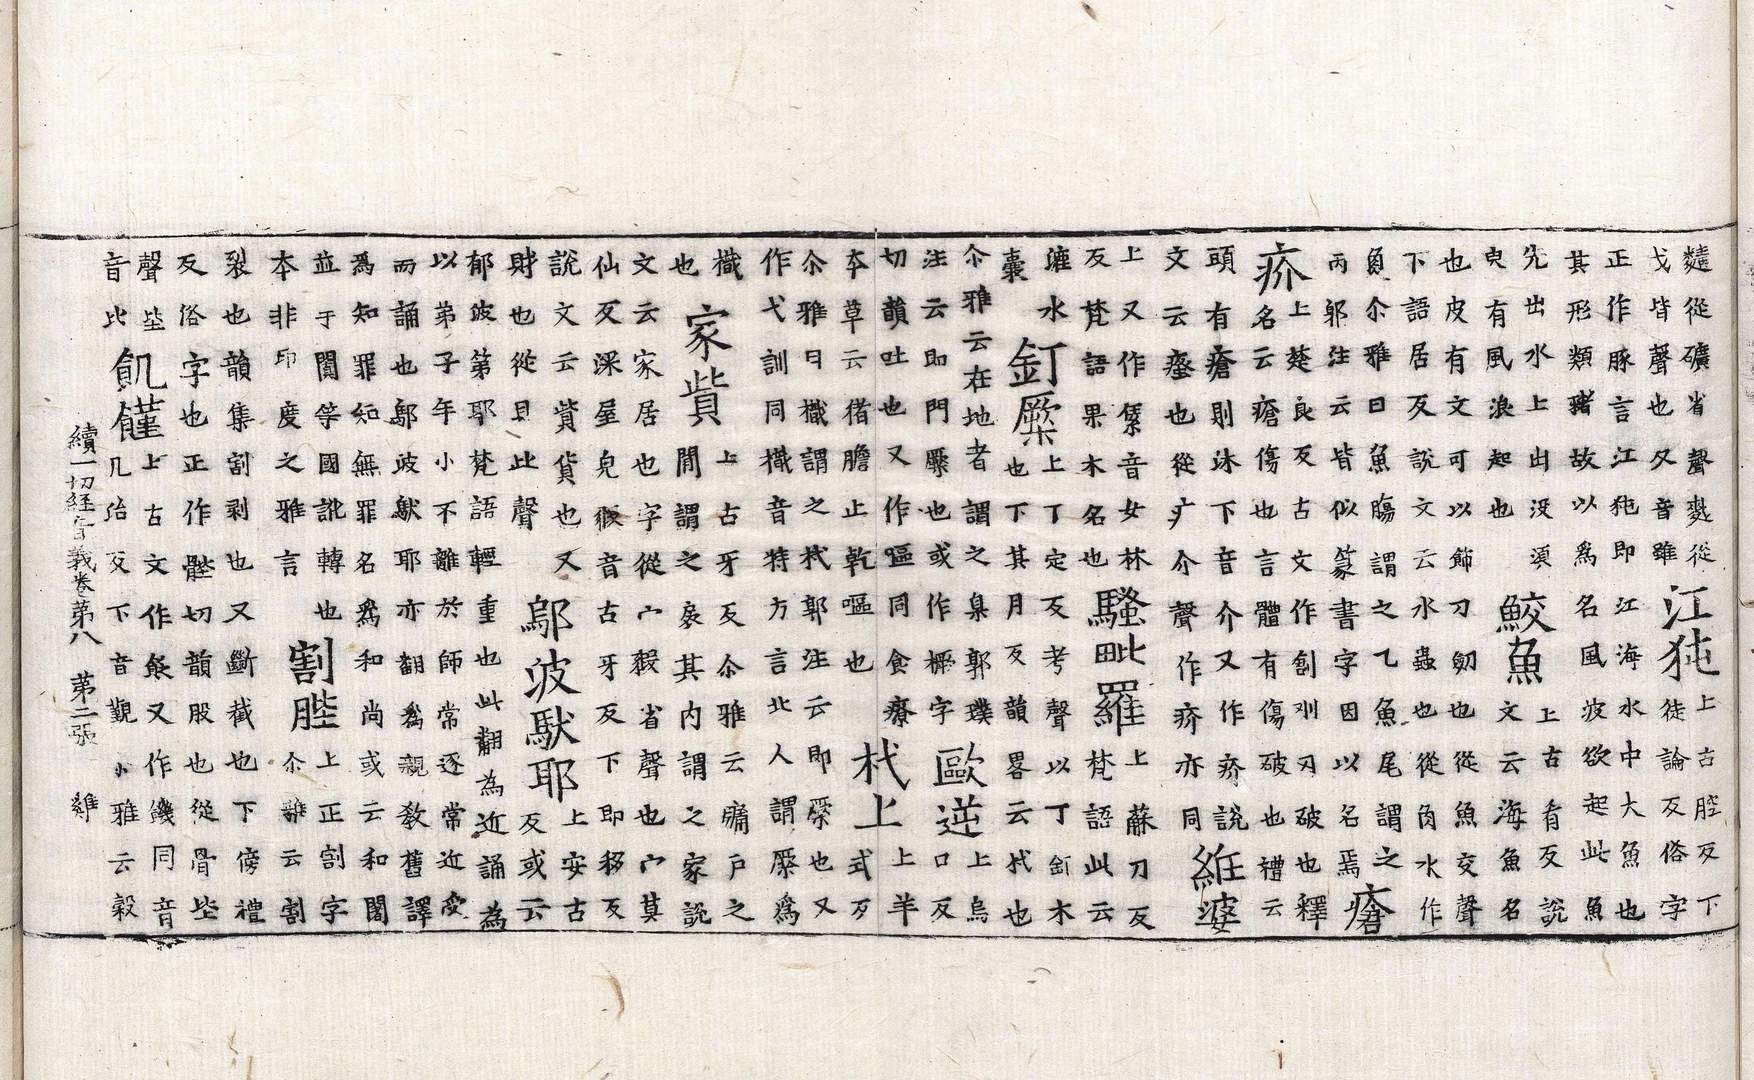 麰從礦省聲麩從
戈皆聲也夂音雖
江㹠
上古腔反下
徒論反俗字
正作豚言江㹠即江海水中大魚也
其形類豬故以爲名風波欲起此魚
先出水上出没須
曳有風浪起也
鮫魚
上古肴反說
文云海魚名
也皮有文可以飾刀劒也從魚交聲
下語居反說文云水蟲也從肉水作
魚尒雅曰魚腸謂之乙魚尾謂之
丙郭注云皆似篆書字因以名焉
瘡
疥
上楚良反古文作創刅刃破也釋
名云瘡傷也言體有傷破也禮云
頭有瘡則沐下音介又作疥說
文云瘙也從疒介聲作疥亦同
維婆
上又作縏音女林
反梵語果木名也
騷毗羅
上蘇刀反
梵語此云
漉水
囊
釘橜
上丁定反考聲以丁釘木
也下其月反韻畧云杙也
尒雅云在地者謂之臬郭璞
注云即門橜也或作橛字
歐逆
上烏
口反
切韻吐也又作嘔同食療
本草云偖膽止乾嘔也
杙上
上羊
式反
尒雅曰樴謂之杙郭注云即橜也又
作弋訓同樴音特方言北人謂橜爲
樴
也
家貲
上古牙反尒雅云牖户之
閒謂之扆其内謂之家說
文云家居也字從宀豭省聲也宀莫
仙反深屋皃豭音古牙反下即移反
說文云貲貨也又
財也從貝此聲
鄔波馱耶
上安古
反或云
郁波第耶梵語輕重也此翻為近誦為
以弟子年小不離於師常逐常近受
而誦也鄔波馱耶亦翻爲親教舊譯
爲知罪知無罪名爲和尚或云和闍
並于闐等國訛轉也
本非印度之雅言
割䏶
上正割字
尒雅云割
裂也韻集割剥也又斷截也下傍禮
反俗字也正作髀切韻股也從骨坒
聲坒
音比
飢饉
上古文作飺又作饑同音
几治反下音覲尒雅云穀
續一切經音義卷第八 第二張 雞